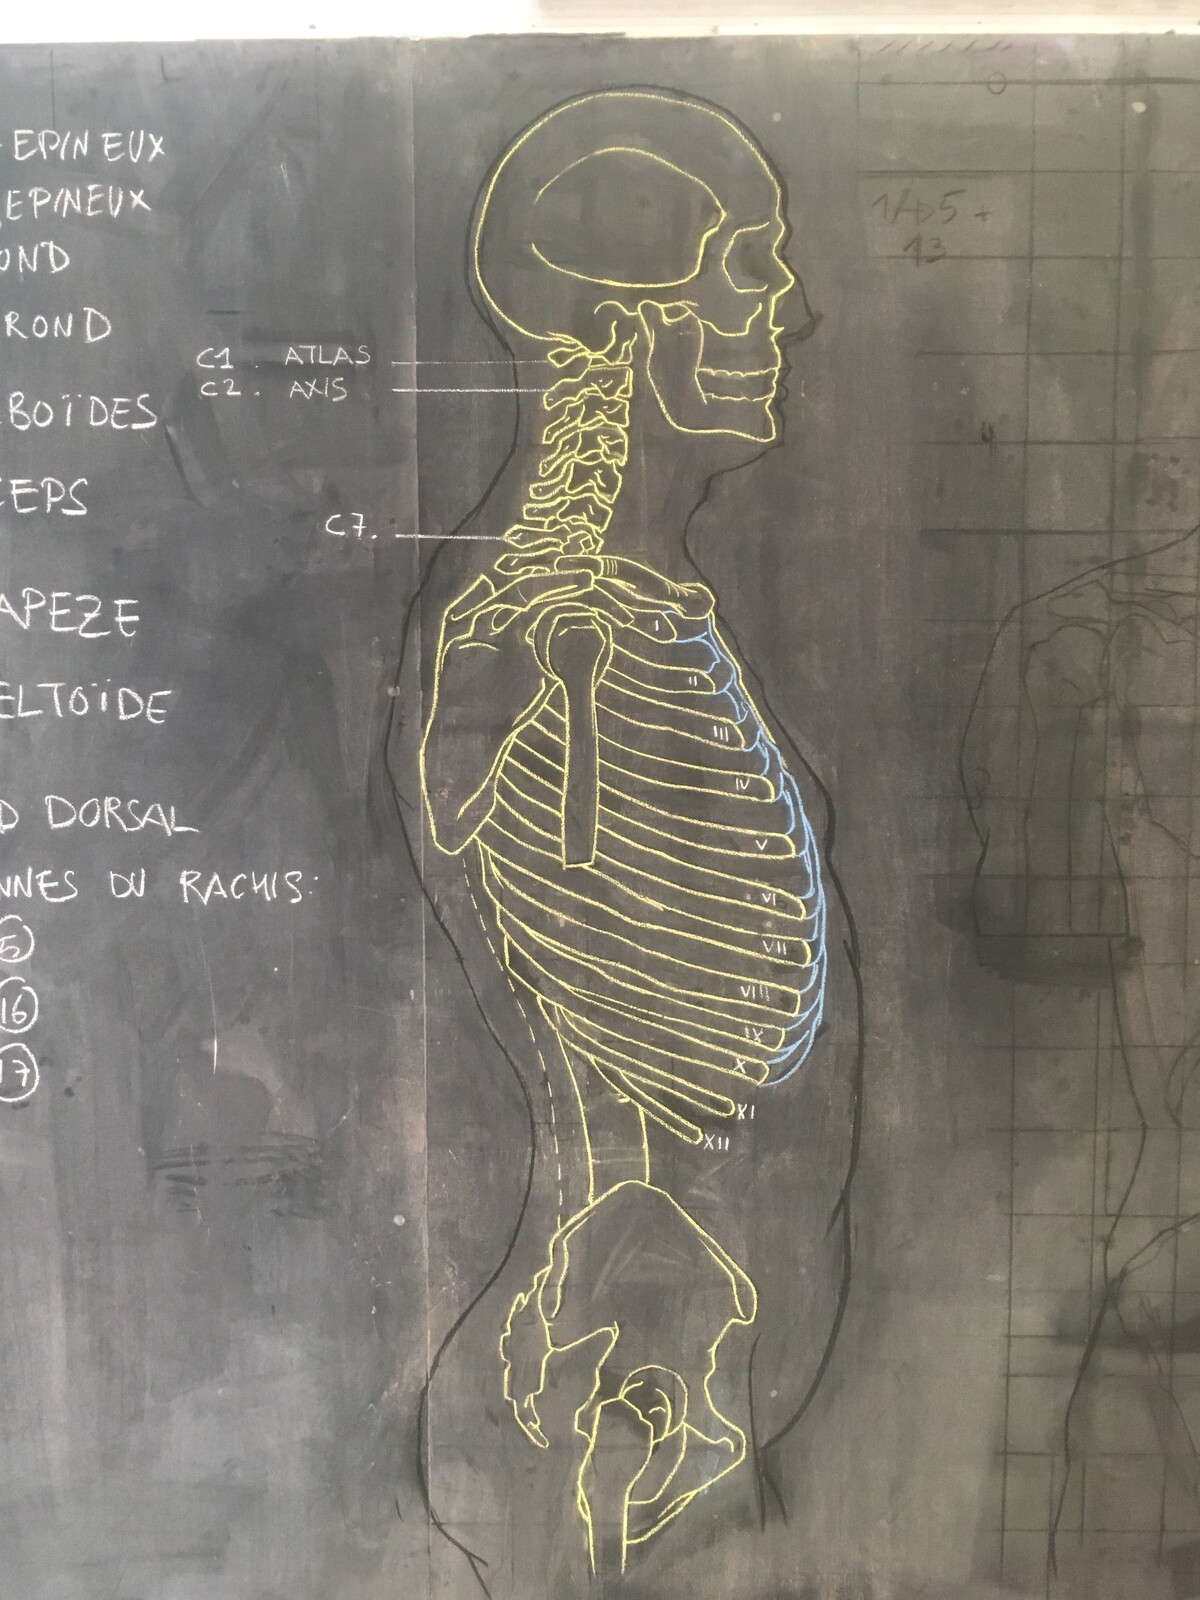 EPINEUX
EPINEUX
OND
ROND
BOÏDES
CEPS
APEZE
ELTOÏDE
D DORSAL
NNES DU RACHIS:
5
16
17
C1. ATLAS
C2. AXIS
C7.
I
II
III
IV
V
VI
VII
VIII
IX
X
XI
XII
13